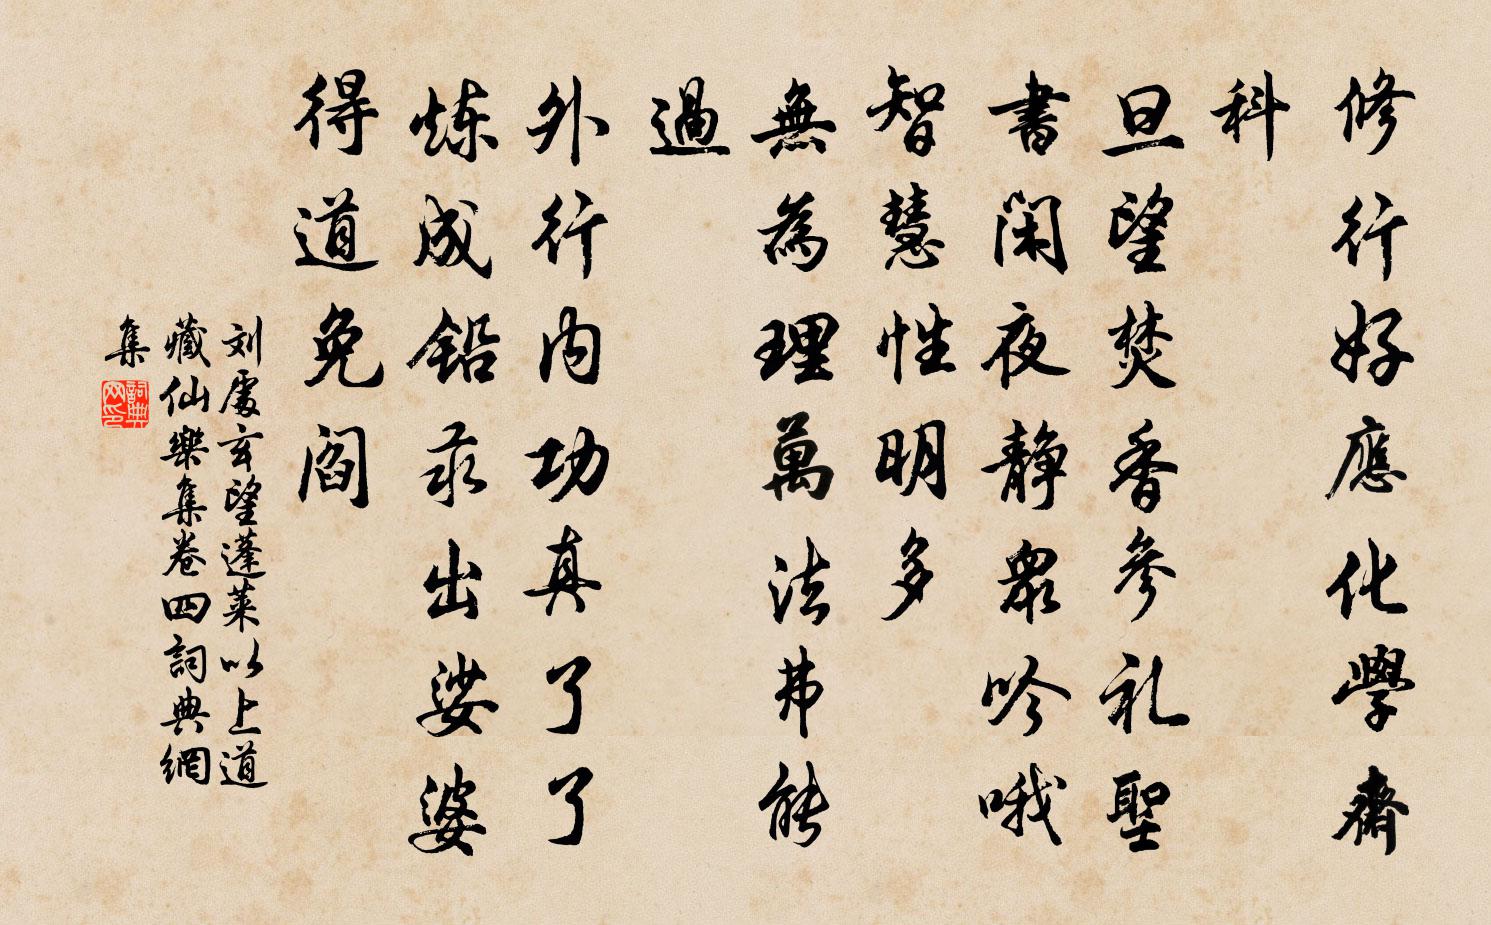 修行好應化學齋
科
旦望焚香參礼聖
書閑夜静眾吟哦
智慧性明多
無為理萬法弗能
過
外行内功真了了
炼成铅汞出娑婆
得道免阎
刘處玄望蓬莱以上道
藏仙樂集卷四詞典網
集
詞典
网印